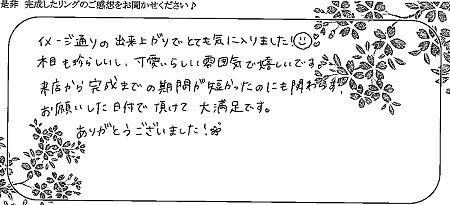 是非 完成したリングのご感想をお聞かせください♪
イメージ通りの出来上がりでとても気に入りました!
木目も珍らしいし、可愛いらしい雰囲気で嬉しいです。
来店から完成までの期間が短かったのにも関わらず、
お願いした日付で頂けて 大満足です。
ありがとうございました!